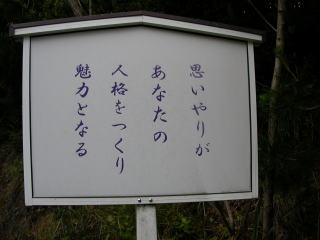 思いやりが
あなたの
人格をつくり
魅力となる